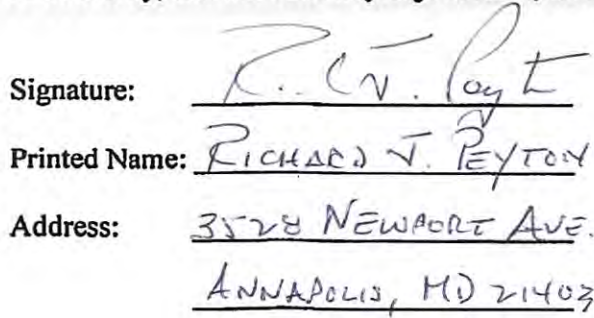 Signature: R. J. Peyton
Printed Name: RICHARD J. PEYTON
Address: 3528 NEWPORT AVE.
ANNAPOLIS, MD 21403